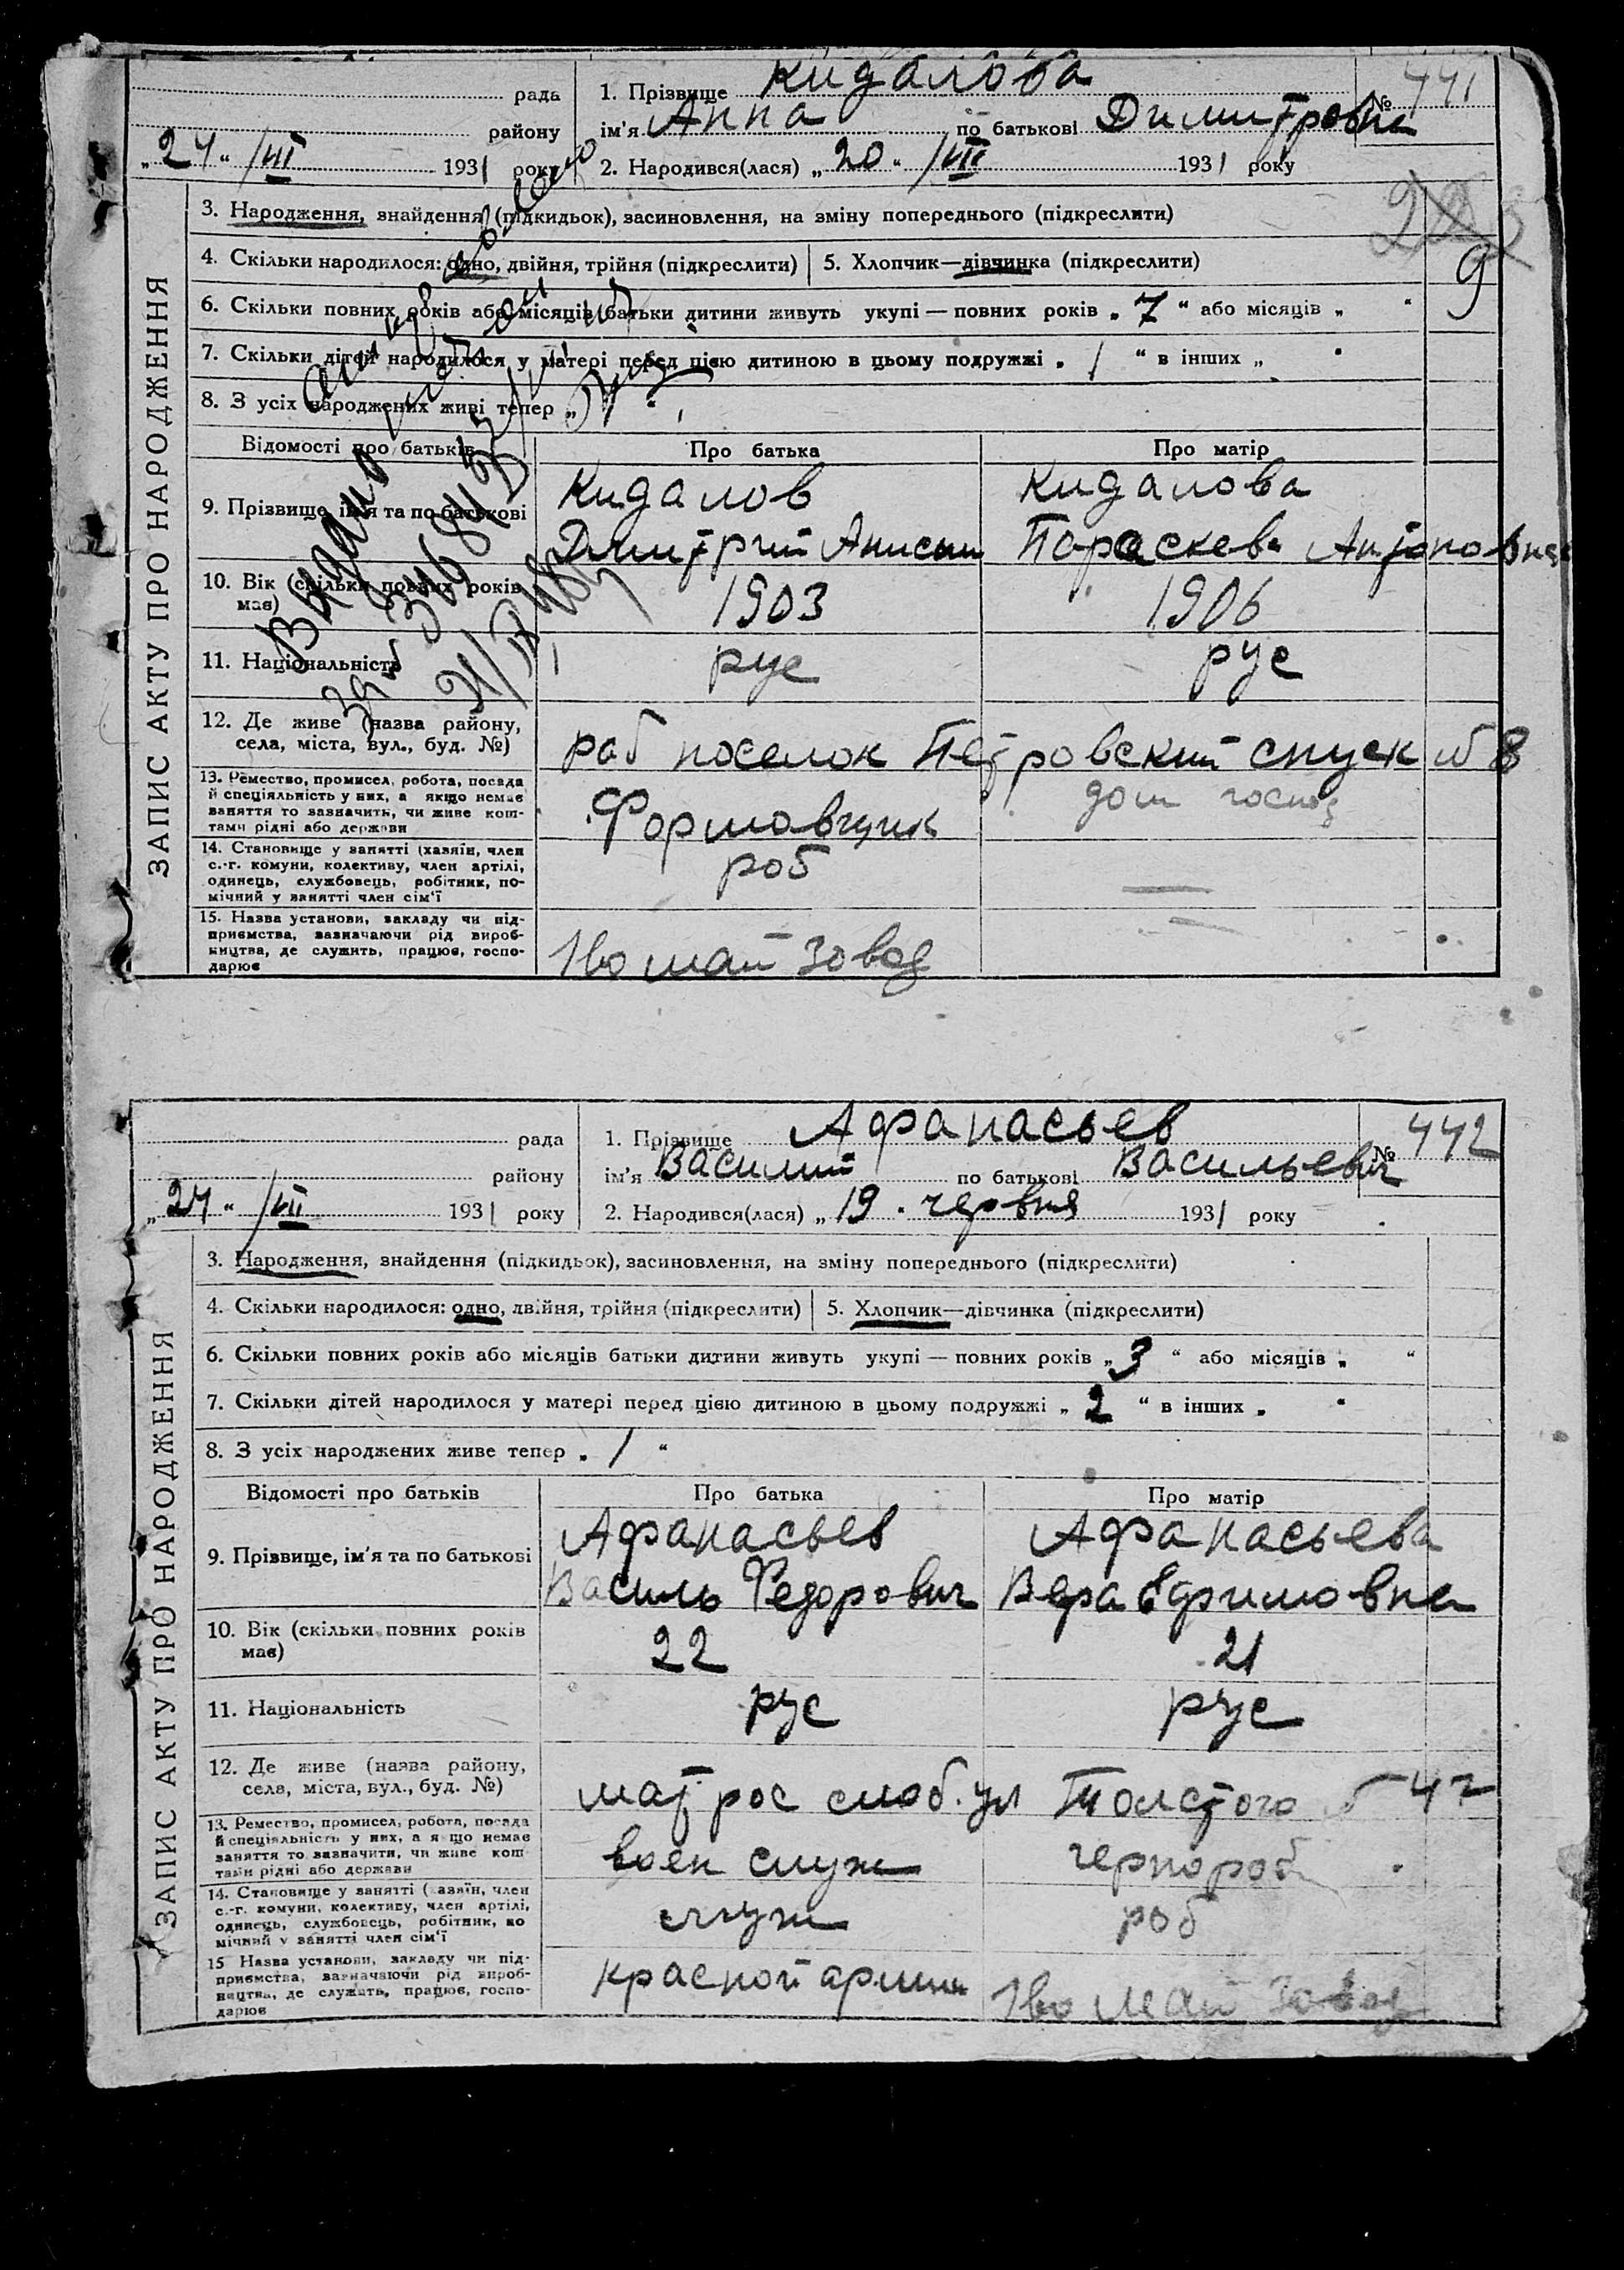 рада
району
„24“ /VII 1931 року
1. Прізвище Кидалова
№ 441
ім'я Анна по батькові Димитровна
2. Народився(лася) „20“ /VII 1931 року
3. Народження, знайдення (підкидьок), засиновлення, на зміну попереднього (підкреслити)
4. Скільки народилося: одно, двійня, трійня (підкреслити) 5. Хлопчик—дівчинка (підкреслити)
9
6. Скільки повних років або місяців батьки дитини живуть укупі — повних років „7“ або місяців „ “
7. Скільки дітей народилося у матері перед цією дитиною в цьому подружжі „1“ в інших „ “
8. З усіх народжених живі тепер „ “
Видано
Відомості про батьків Про батька Про матір
9. Прізвище, ім'я та по батькові
Кидалов Кидалова
Димтрий Анисим Параскева Антоновна
10. Вік (скільки повних років має) 1903 1906
11. Національність рус рус
12. Де живе (назва району, села, міста, вул., буд. №)
раб поселок Петровский спуск № 8
13. Ремество, промисел, робота, посада й спеціяльність у них, а якщо немає заняття то зазначить, чи живе коштами рідні або держави
Формовщик дом господ
14. Становище у занятті (хазяїн, член с.-г. комуни, колективу, член артілі, одинець, службовець, робітник, помічний у занятті член сім'ї
роб —
15. Назва установи, закладу чи підприємства, зазначаючи рід виробництва, де служить, працює, господарює
1во май завод —
ЗАПИС АКТУ ПРО НАРОДЖЕННЯ
рада
району
„24“ /VII 1931 року
1. Прізвище Афанасьев
№ 442
ім'я Василий по батькові Васильевич
2. Народився(лася) „19“ червня 1931 року
3. Народження, знайдення (підкидьок), засиновлення, на зміну попереднього (підкреслити)
4. Скільки народилося: одно, двійня, трійня (підкреслити) 5. Хлопчик—дівчинка (підкреслити)
6. Скільки повних років або місяців батьки дитини живуть укупі — повних років „3“ або місяців „ “
7. Скільки дітей народилося у матері перед цією дитиною в цьому подружжі „2“ в інших „ “
8. З усіх народжених живе тепер „1“
Відомості про батьків Про батька Про матір
9. Прізвище, ім'я та по батькові
Афанасьев Афанасьева
Василь Федорович Вера Ефимовна
10. Вік (скільки повних років має) 22 21
11. Національність рус рус
12. Де живе (назва району, села, міста, вул., буд. №)
матрос слоб. ул Толстого № 42
13. Ремество, промисел, робота, посада й спеціяльність у них, а якщо немає заняття то зазначити, чи живе коштами рідні або держави
воен служ чернороб
14. Становище у занятті (хазяїн, член с.-г. комуни, колективу, член артілі, одинець, службовець, робітник, помічний у занятті член сім'ї
служ роб
15 Назва установи, закладу чи підприємства, зазначаючи рід виробництва, де служить, працює, господарює
красной армии 1во Май завод
ЗАПИС АКТУ ПРО НАРОДЖЕННЯ